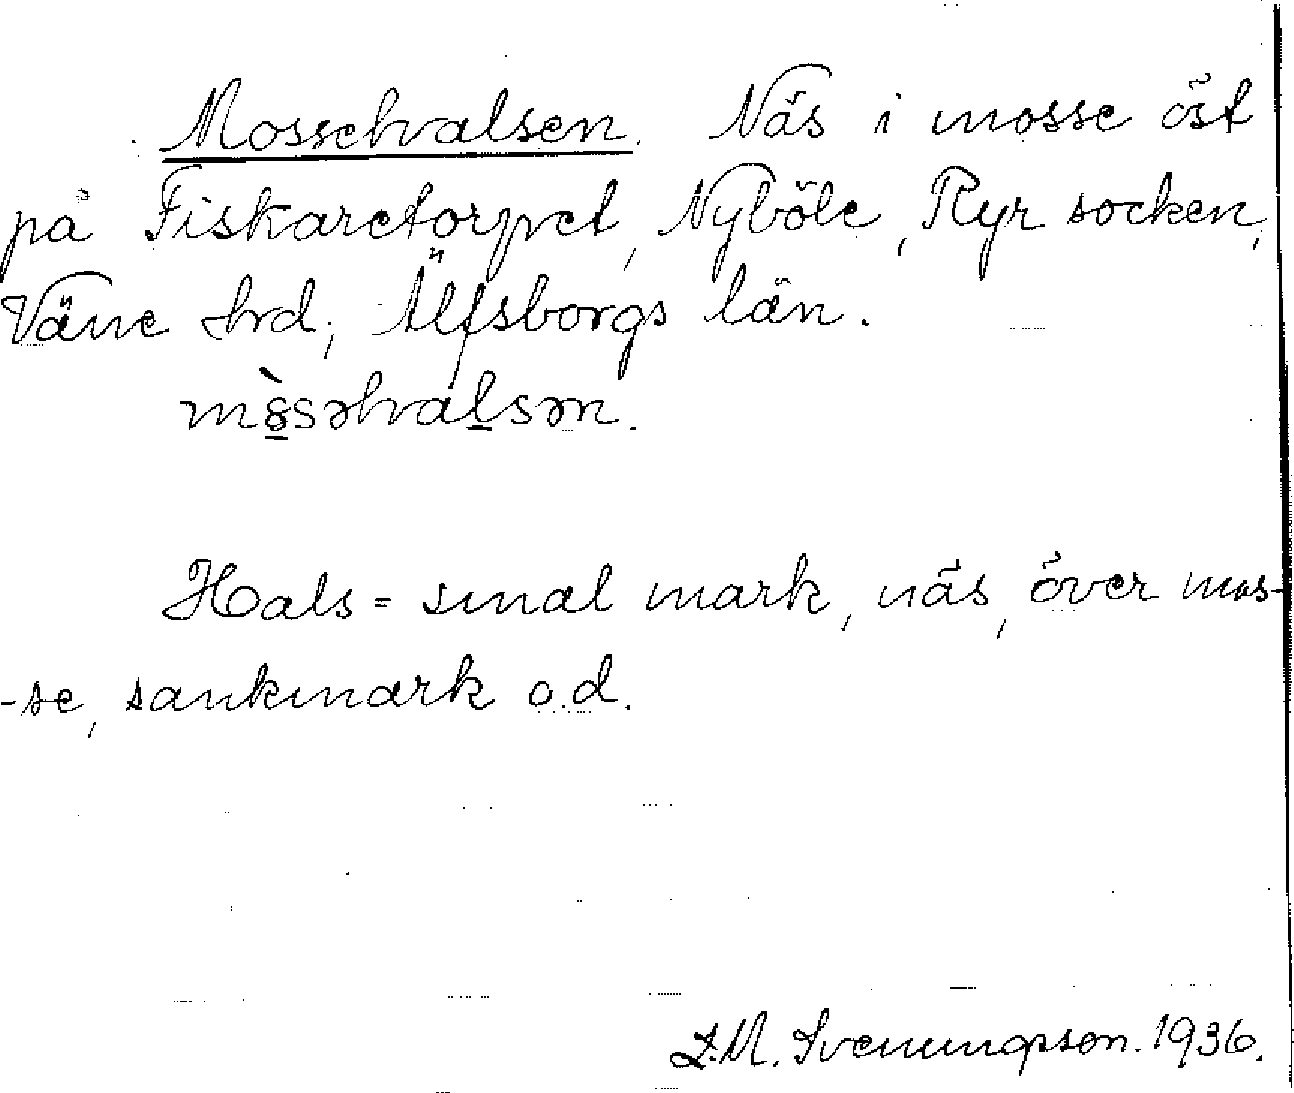 Mossehvalsen. Näs i mosse öst
på Fiskaretorpet, Nyböle, Ryr socken,
Väne hrd, Älfsborgs län.
Hals = smal mark, näs, över mos-
-se, sankmark o.d.
D.M. Svenungsson. 1936.